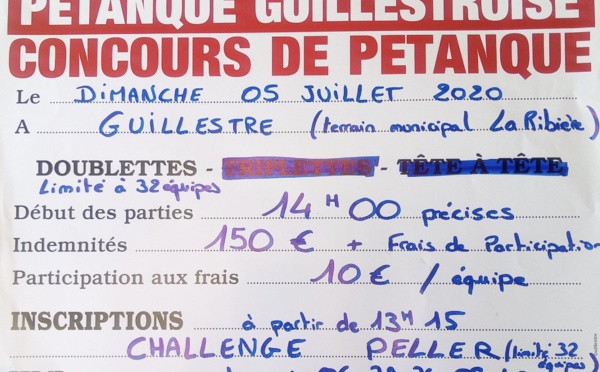 PETANQUE GUILLESTROISE
CONCOURS DE PETANQUE
Le DIMANCHE 05 JUILLET 2020
A GUILLESTRE (terrain municipal La Ribière)
DOUBLETTES - TRIPLETTES - TÊTE À TÊTE
Limité à 32 équipes
Début des parties 14H00 précises
Indemnités 150 € + Frais de Participation
Participation aux frais 10€ / équipe
INSCRIPTIONS à partir de 13H15
CHALLENGE PELLER (limité 32 équipes)